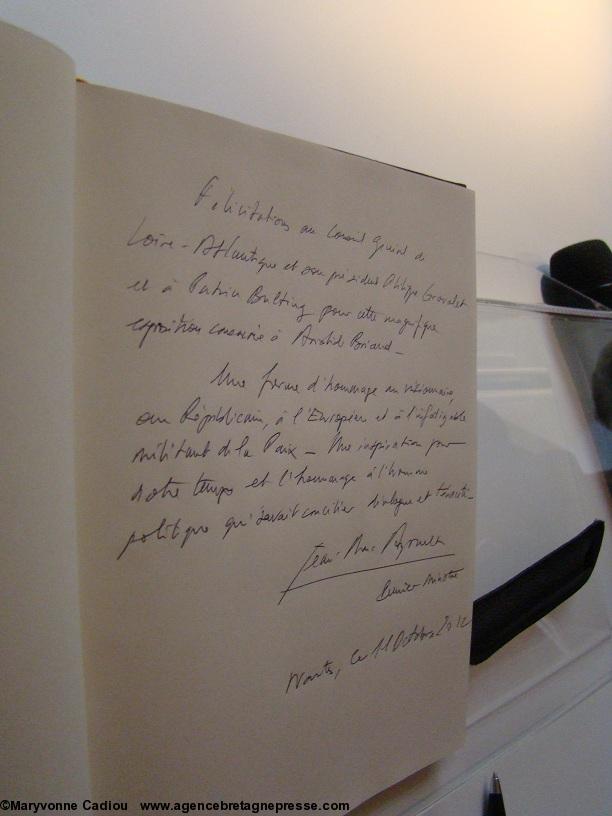 Félicitations au Conseil général de
Loire-Atlantique et son président Philippe Grosvalet
et à Patrick pour cette magnifique
exposition consacrée à Aristide Briand_
Une forme d'hommage au visionnaire,
au Républicain, à l'Européen et à l'infatigable
militant de la Paix_ Une inspiration pour
notre temps et l'hommage à l'homme
politique qui savait concilier dialogue et ténacité_
Jean-Marc Ayrault
Premier Ministre
Nantes, le 11 Octobre 2012
©Maryvonne Cadiou www.agencebretagnepresse.com